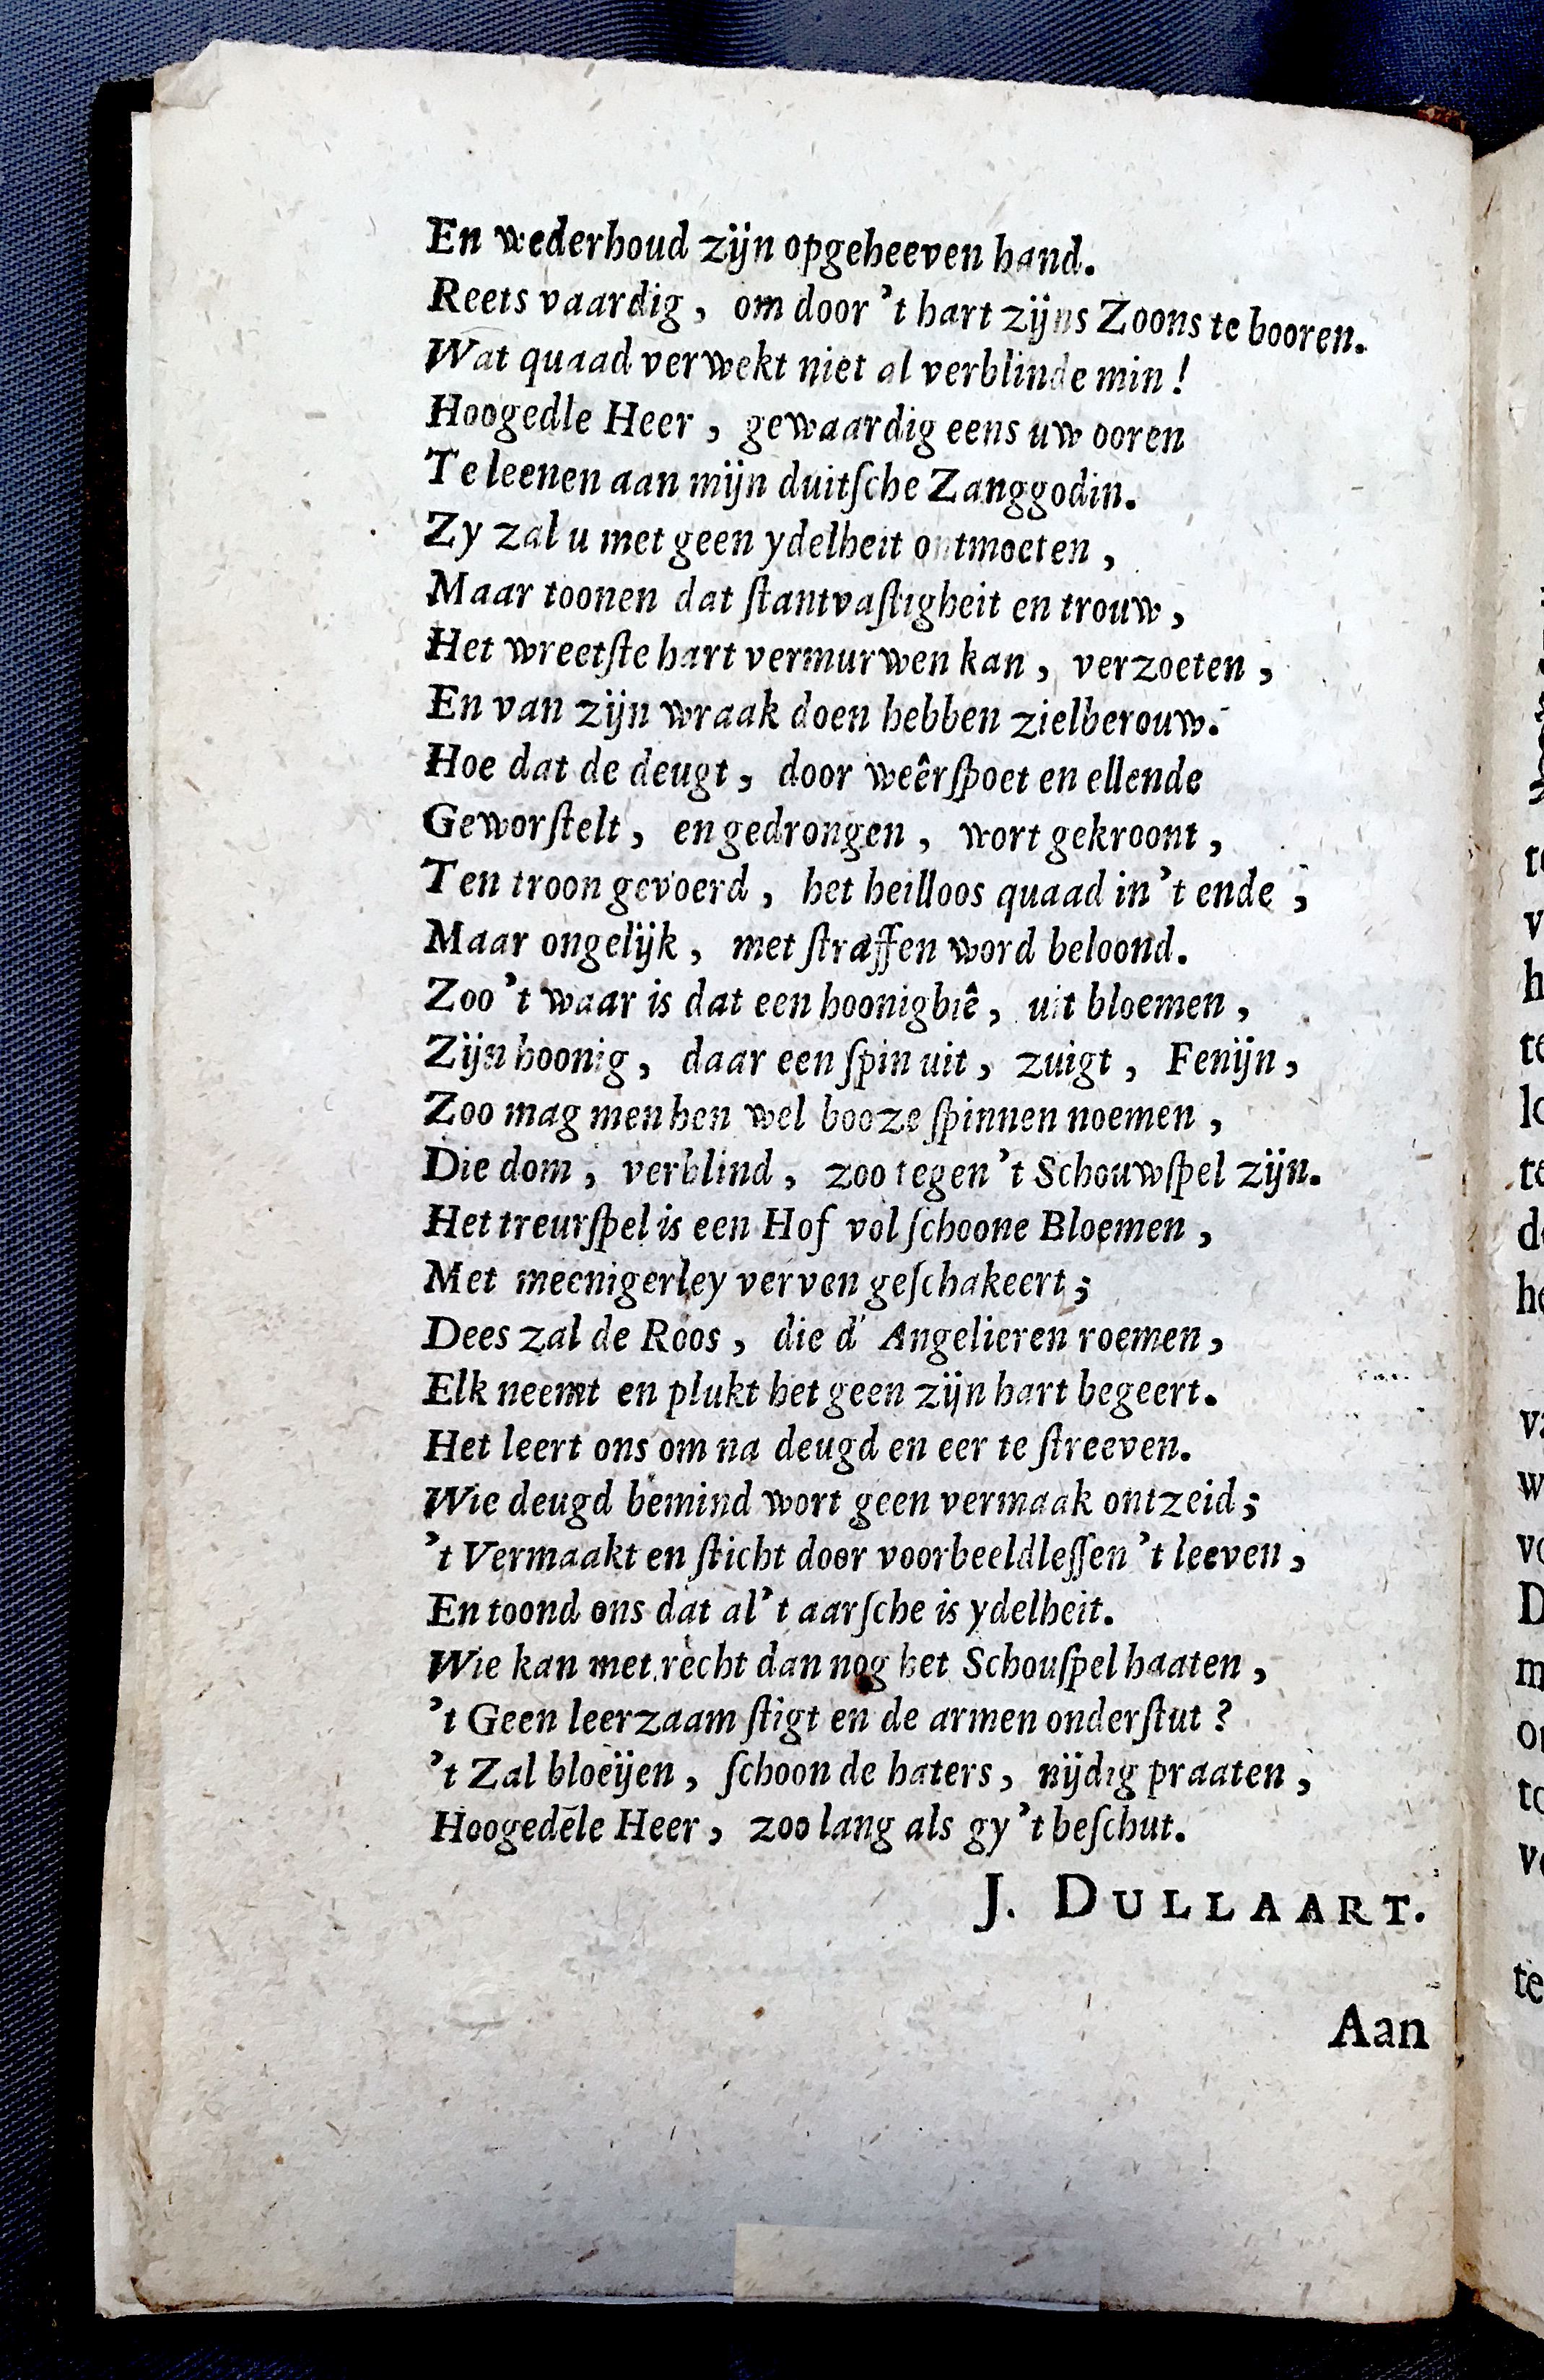 En wederhoud zijn opgeheeven hand.
Reets vaardig, om door 't hart zijns Zoons te booren.
Wat quaad verwekt niet al verblinde min!
Hoogedle Heer, gewaardig eens uw ooren
Te leenen aan mijn duitſche Zanggodin.
Zy zal u met geen ydelheit ontmoeten,
Maar toonen dat ſtantvaſtigheit en trouw,
Het wreetſte hart vermurwen kan, verzoeten,
En van zijn wraak doen hebben zielberouw.
Hoe dat de deugt, door weêrſpoet en ellende
Geworſtelt, en gedrongen, wort gekroont,
Ten troon gevoerd, het heilloos quaad in 't ende;
Maar ongelijk, met ſtraffen word beloond.
Zoo 't waar is dat een hoonigbiê, uit bloemen,
Zijn hoonig, daar een ſpin uit, zuigt, Fenijn,
Zoo mag men hen wel booze ſpinnen noemen,
Die dom, verblind, zoo tegen 't Schouwſpel zijn.
Het treurſpel is een Hof vol ſchoone Bloemen,
Met meenigerley verven geſchakeert;
Dees zal de Roos, die d' Angelieren roemen,
Elk neemt en plukt het geen zijn hart begeert.
Het leert ons om na deugd en eer te ſtreeven.
Wie deugd bemind wort geen vermaak ontzeid;
't Vermaakt en ſticht door voorbeeldleſſen 't leeven,
En toond ons dat al 't aarſche is ydelheit.
Wie kan met recht dan nog het Schouſpel haaten,
't Geen leerzaam ſtigt en de armen onderſtut?
't Zal bloeijen, ſchoon de haters, nijdig praaten,
Hoogedēle Heer, zoo lang als gy 't beſchut.
J. DULLAART.
Aan